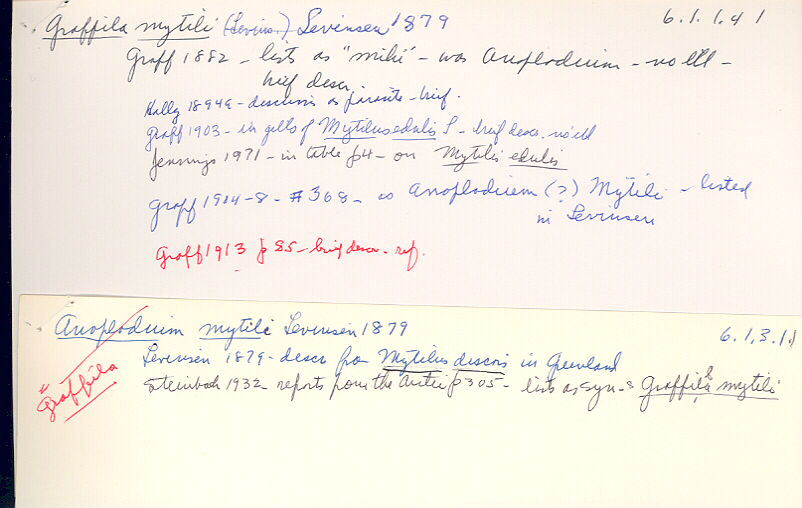 Graffila mytili (Levins.) Levinsen 1879 6.1.1.41
Graff 1882 - lists as "mihi" - was Anoplodium - no ill -
brief descr.
Hally 1894a - discussion as parasite - brief.
Graff 1903 - in gills of Mytilus edulis L - brief descr. no ill
Jennings 1971 - in table p4 - on Mytilis edulis
Graff 1904-8 - #368 - as Anoplodium (?) Mytili - listed
in Levinsen
Graff 1913 p 85 - brief descr. - ref.
Anoplodium mytili Levinsen 1879 6.1.3.1
Levinsen 1879 - descr from Mytilus discors in Greenland
= Graffila
Steinbock 1932 reports from the Arctic p 305 - lists as syn. of Graffila mytili